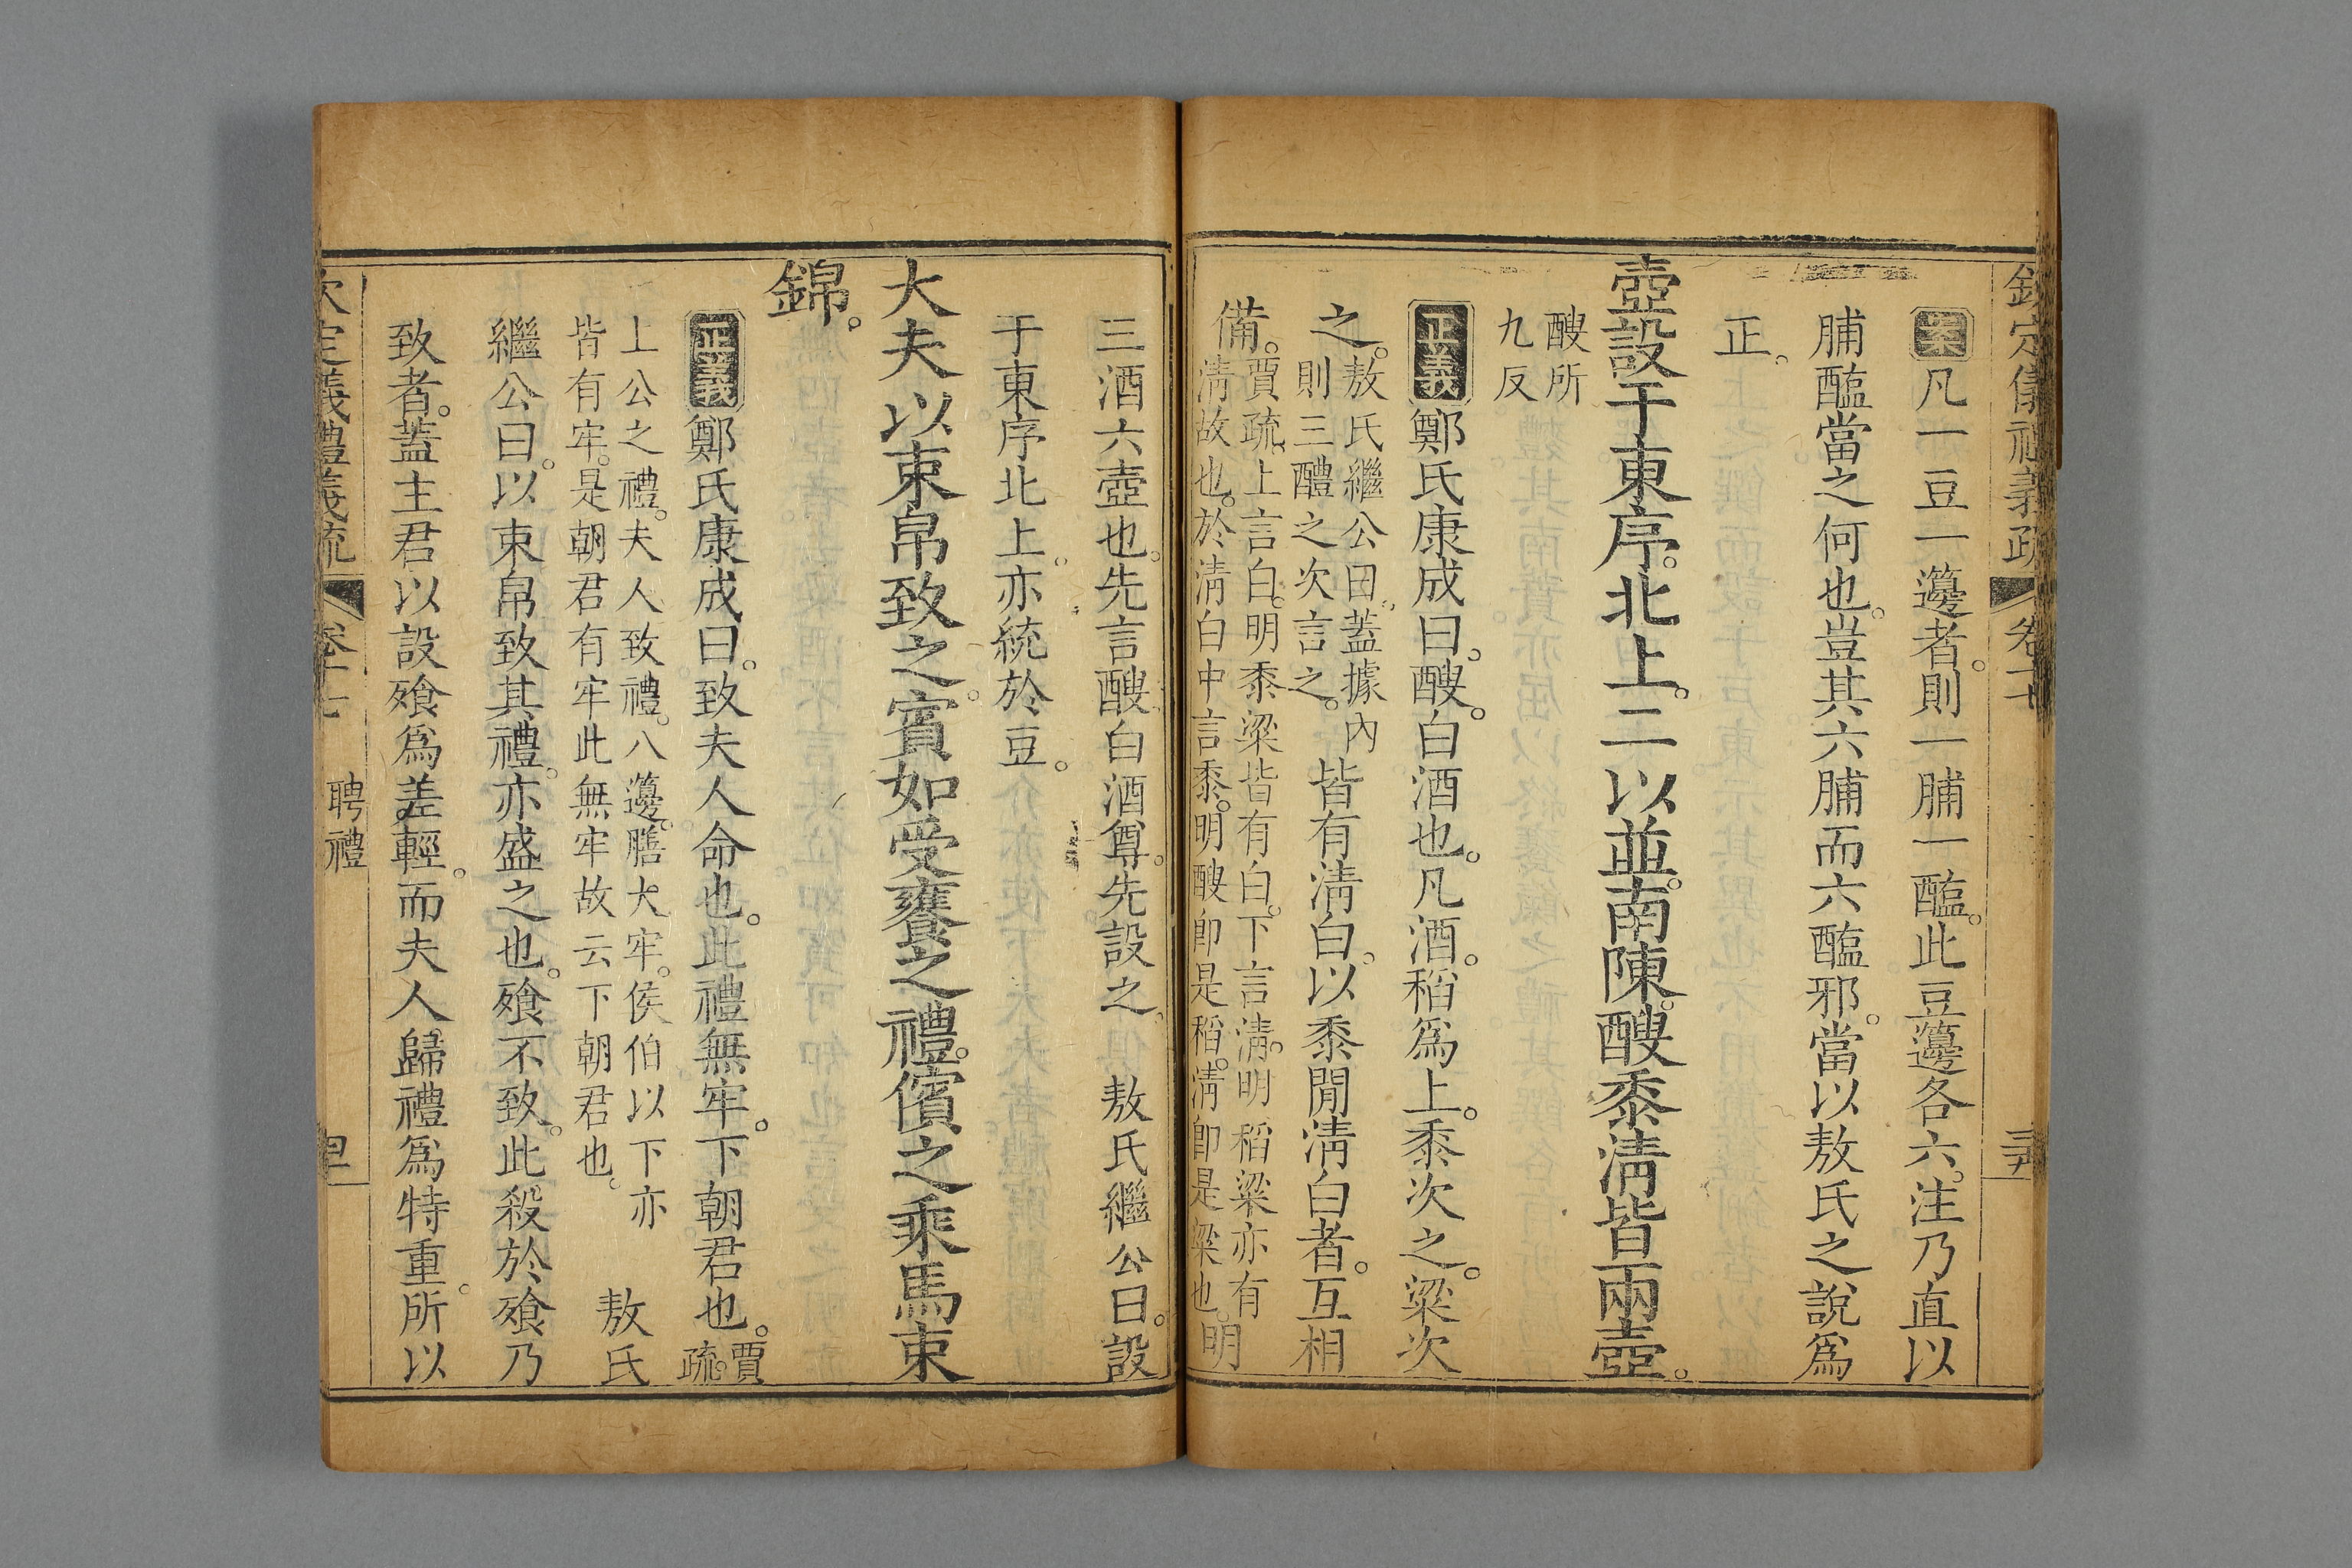 案凡一豆一籩者。則一脯一醢。此豆籩各六。注乃直以
脯醢當之何也。豈其六脯而六醢邪。當以敖氏之說爲
正。
壺設于東序。北上。二以並。南陳。醙黍淸皆兩壺。
醙所
九反
正義鄭氏康成曰。醙。白酒也。凡酒。稻爲上。黍次之。粱次
之。
敖氏繼公曰。蓋據內
則三醴之次言之。
皆有淸白。以黍間淸白者。互相
備。
賈疏。上言白。明黍粱皆有白。下言淸。明稻粱亦有
淸故也。於淸白中言黍。明醙卽是稻。淸卽是粱也。明
三酒六壺也。先言醙白酒尊。先設之。 敖氏繼公曰。設
于東序北上。亦統於豆。
大夫以束帛致之。賓如受饔之禮。儐之乘馬束
錦。
正義鄭氏康成曰。致夫人命也。此禮無牢。下朝君也。
賈
疏。
上公之禮。夫人致禮。八籩。膳大牢。侯伯以下亦
皆有牢。是朝君有牢此無牢故云下朝君也。
敖氏
繼公曰。以束帛致其禮。亦盛之也。飧不致。此殺於飧乃
致者。蓋主君以設飧爲差輕。而夫人歸禮爲特重。所以
聘禮